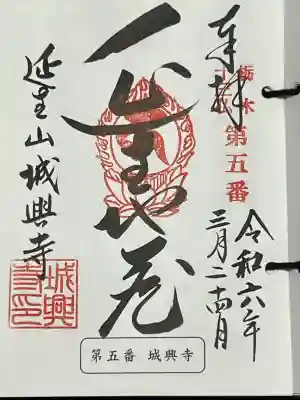 奉拝
栃木
第五番
令和六年
三月二十四日
延生地蔵
延生山城興寺
城興寺印
第五番 城興寺